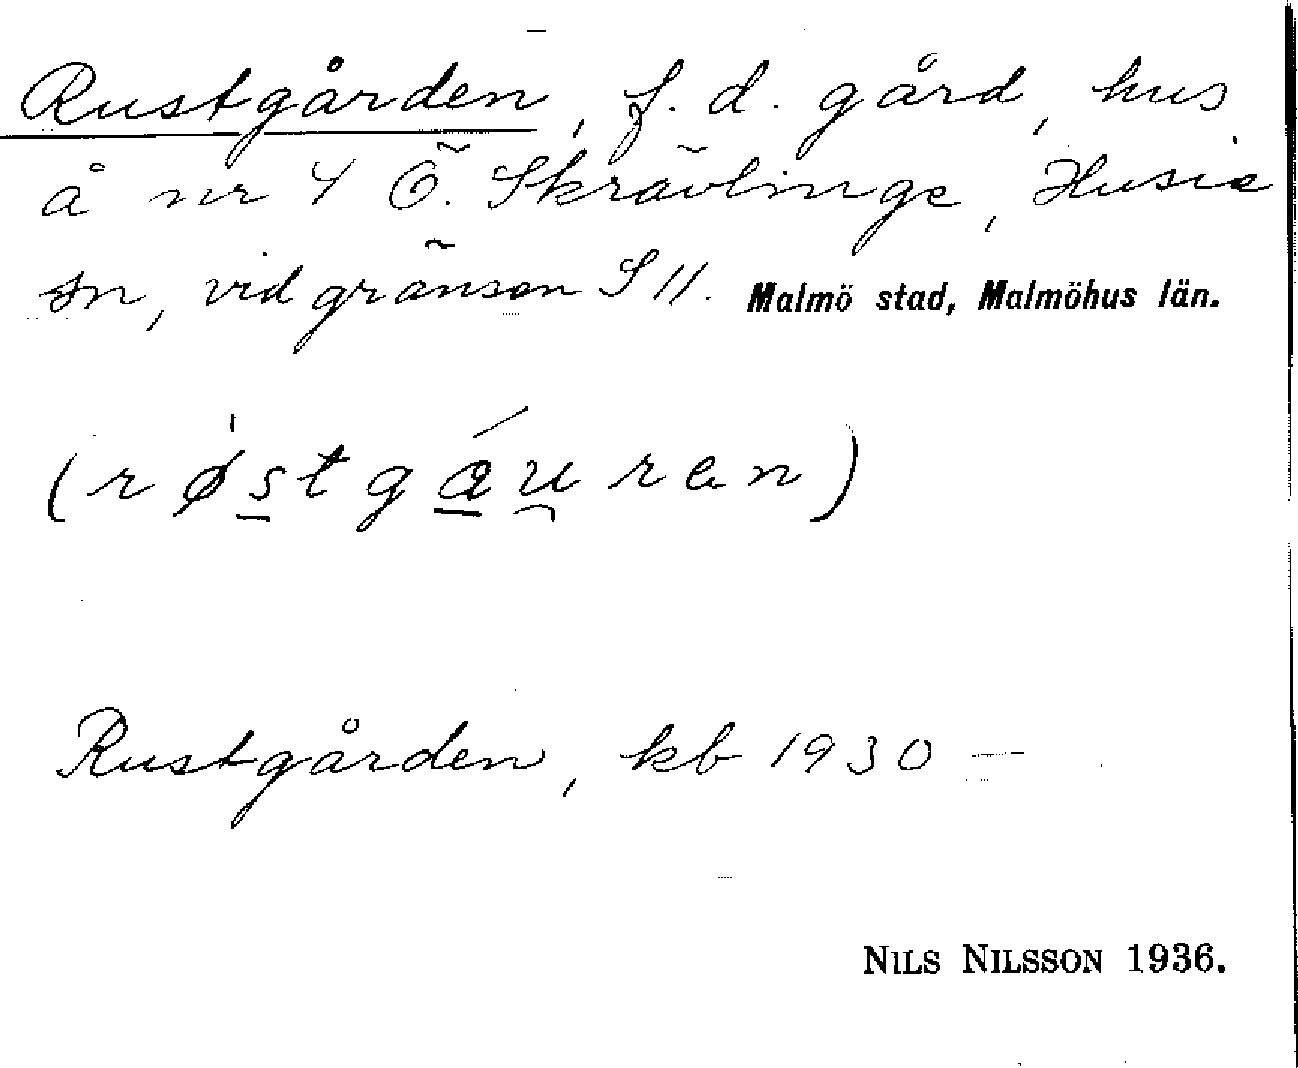 Rustgården, f. d. gård, hus
å nr 4 Ö. Skrävlinge, Husie
sn, vid gränsen S 11. Malmö stad, Malmöhus län.
(rǿs̲tgá̲u̯ren)
Rustgården, kb 1930 —
NILS NILSSON 1936.